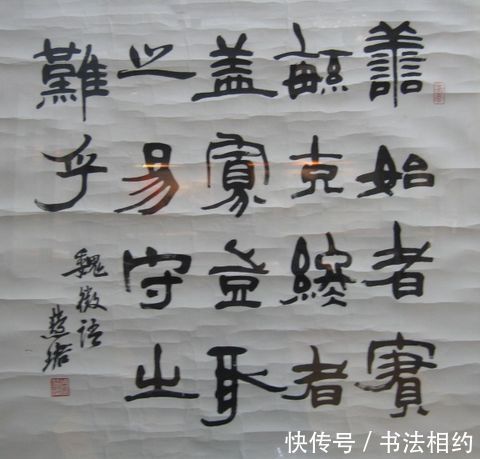 善始者實
繁克終者
盖寡豈取
之易守之
難乎
魏徵語
慧珺
快传号 / 书法相约